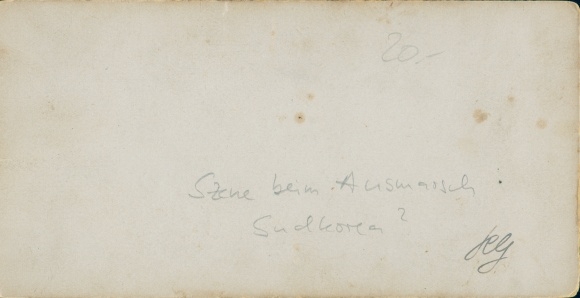 20.-
Szene beim Ausmarsch
Südkorea?